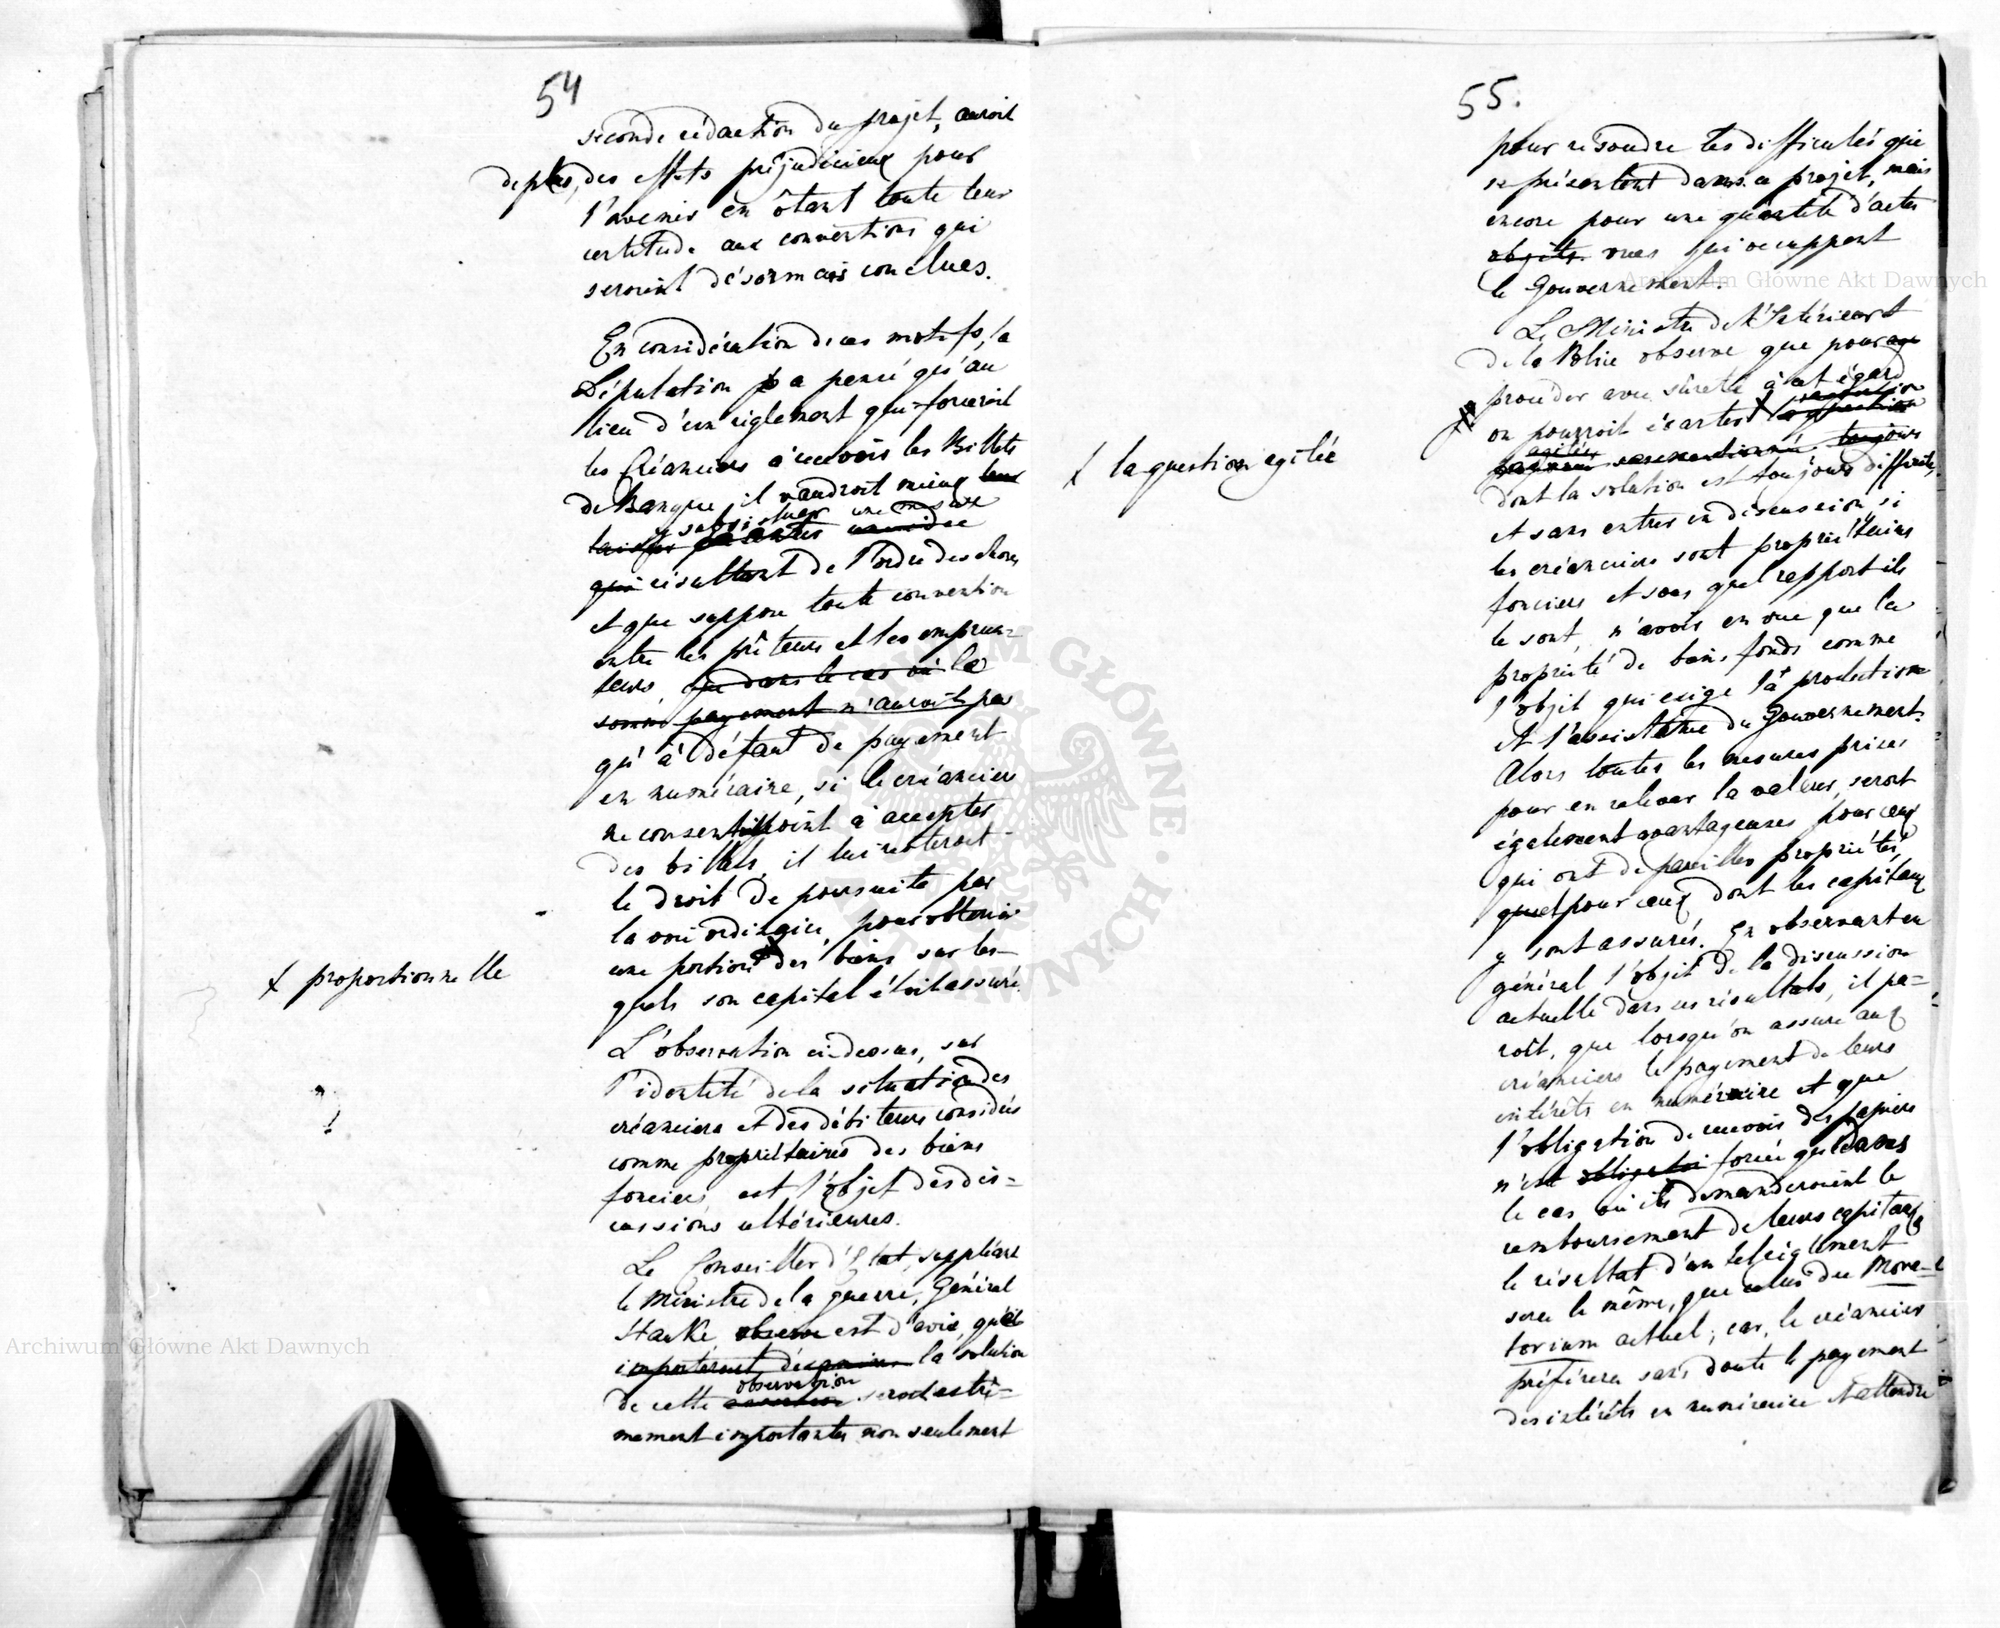 54
seconde rédaction du projet, auroit
de plus, des effets préjudiciaux pour
l'avenir en ôtant toute leur
certitude aux conventions qui
seroient désormais conclues.
En considération de ces motifs, la
Députation a pensé qu'au
lieu d'un réglement qui forceroit
les Créanciers à recevoir les Billets
de Banque il vaudroit mieux leur
y substituer une mesure
laisser
qui résultant de l'ordre des choses
et que suppose toute convention
entre les prêteurs et les emprun=
teurs, que dans le cas où le
somme payement n'auroit pas
qu'à défaut de payement
en numéraire, si le créancier
ne consentit point à accepter
des billets, il lui resteroit
le droit de poursuite par
la voie ordinaire, pour obtenir
une portion x des biens sur les=
quels son capital étoit assuré.
x proportionnelle
L'observation ci-dessus, sur
l'identité de la situation des
créanciers et des débiteurs considérés
comme propriétaires des biens
fonciers, est l'objet des dis=
cussions ultérieures.
Le Conseiller d'Etat, suppléant
le Ministre de la guerre, Général
Hauke observe est d'avis, que
importeroit la solution
de cette observation seroit extrê=
mement importante non seulement
55.
pour résoudre les difficultés que
se présentent dans ce projet, mais
encore pour une quantité d'actes
objets vues qui occuppent
le Gouvernement.
Le Ministre de l'Intérieur et
de la Police observe que pour
procéder avec sûreté à cet égard
on pourroit écarter x
x la question agitée
agitée toujours
dont la solution est toujours difficile,
et sans entrer en discussion, si
les créanciers sont propriétaires
fonciers et sous quel rapport ils
le sont, n'avoir en vue que la
propriété de biens fonds comme
l'objet qui exige la protection
et l'assistance du Gouvernement.
Alors toutes les mesures prises
pour en relever la valeur, seront
également avantageuses pour ceux
qui ont de pareilles propriétés,
que pour ceux dont les capitaux
y sont assurés. En observant en
général l'objet de la discussion
actuelle dans ses résultats, il pa=
roît, que lorsqu'on assure aux
créanciers le payement de leurs
intérêts en numéraire et que
l'obligation de recevoir des papiers
n'est forcée que dans
le cas où ils demanderoient le
remboursement de leurs capitaux
le résultat d'un tel réglement
sera le même, que celui du Mora=
torium actuel; car, le créancier
préférera sans doute le payement
des intérêts en numéraire et attendre
Archiwum Główne Akt Dawnych
Archiwum Główne Akt Dawnych